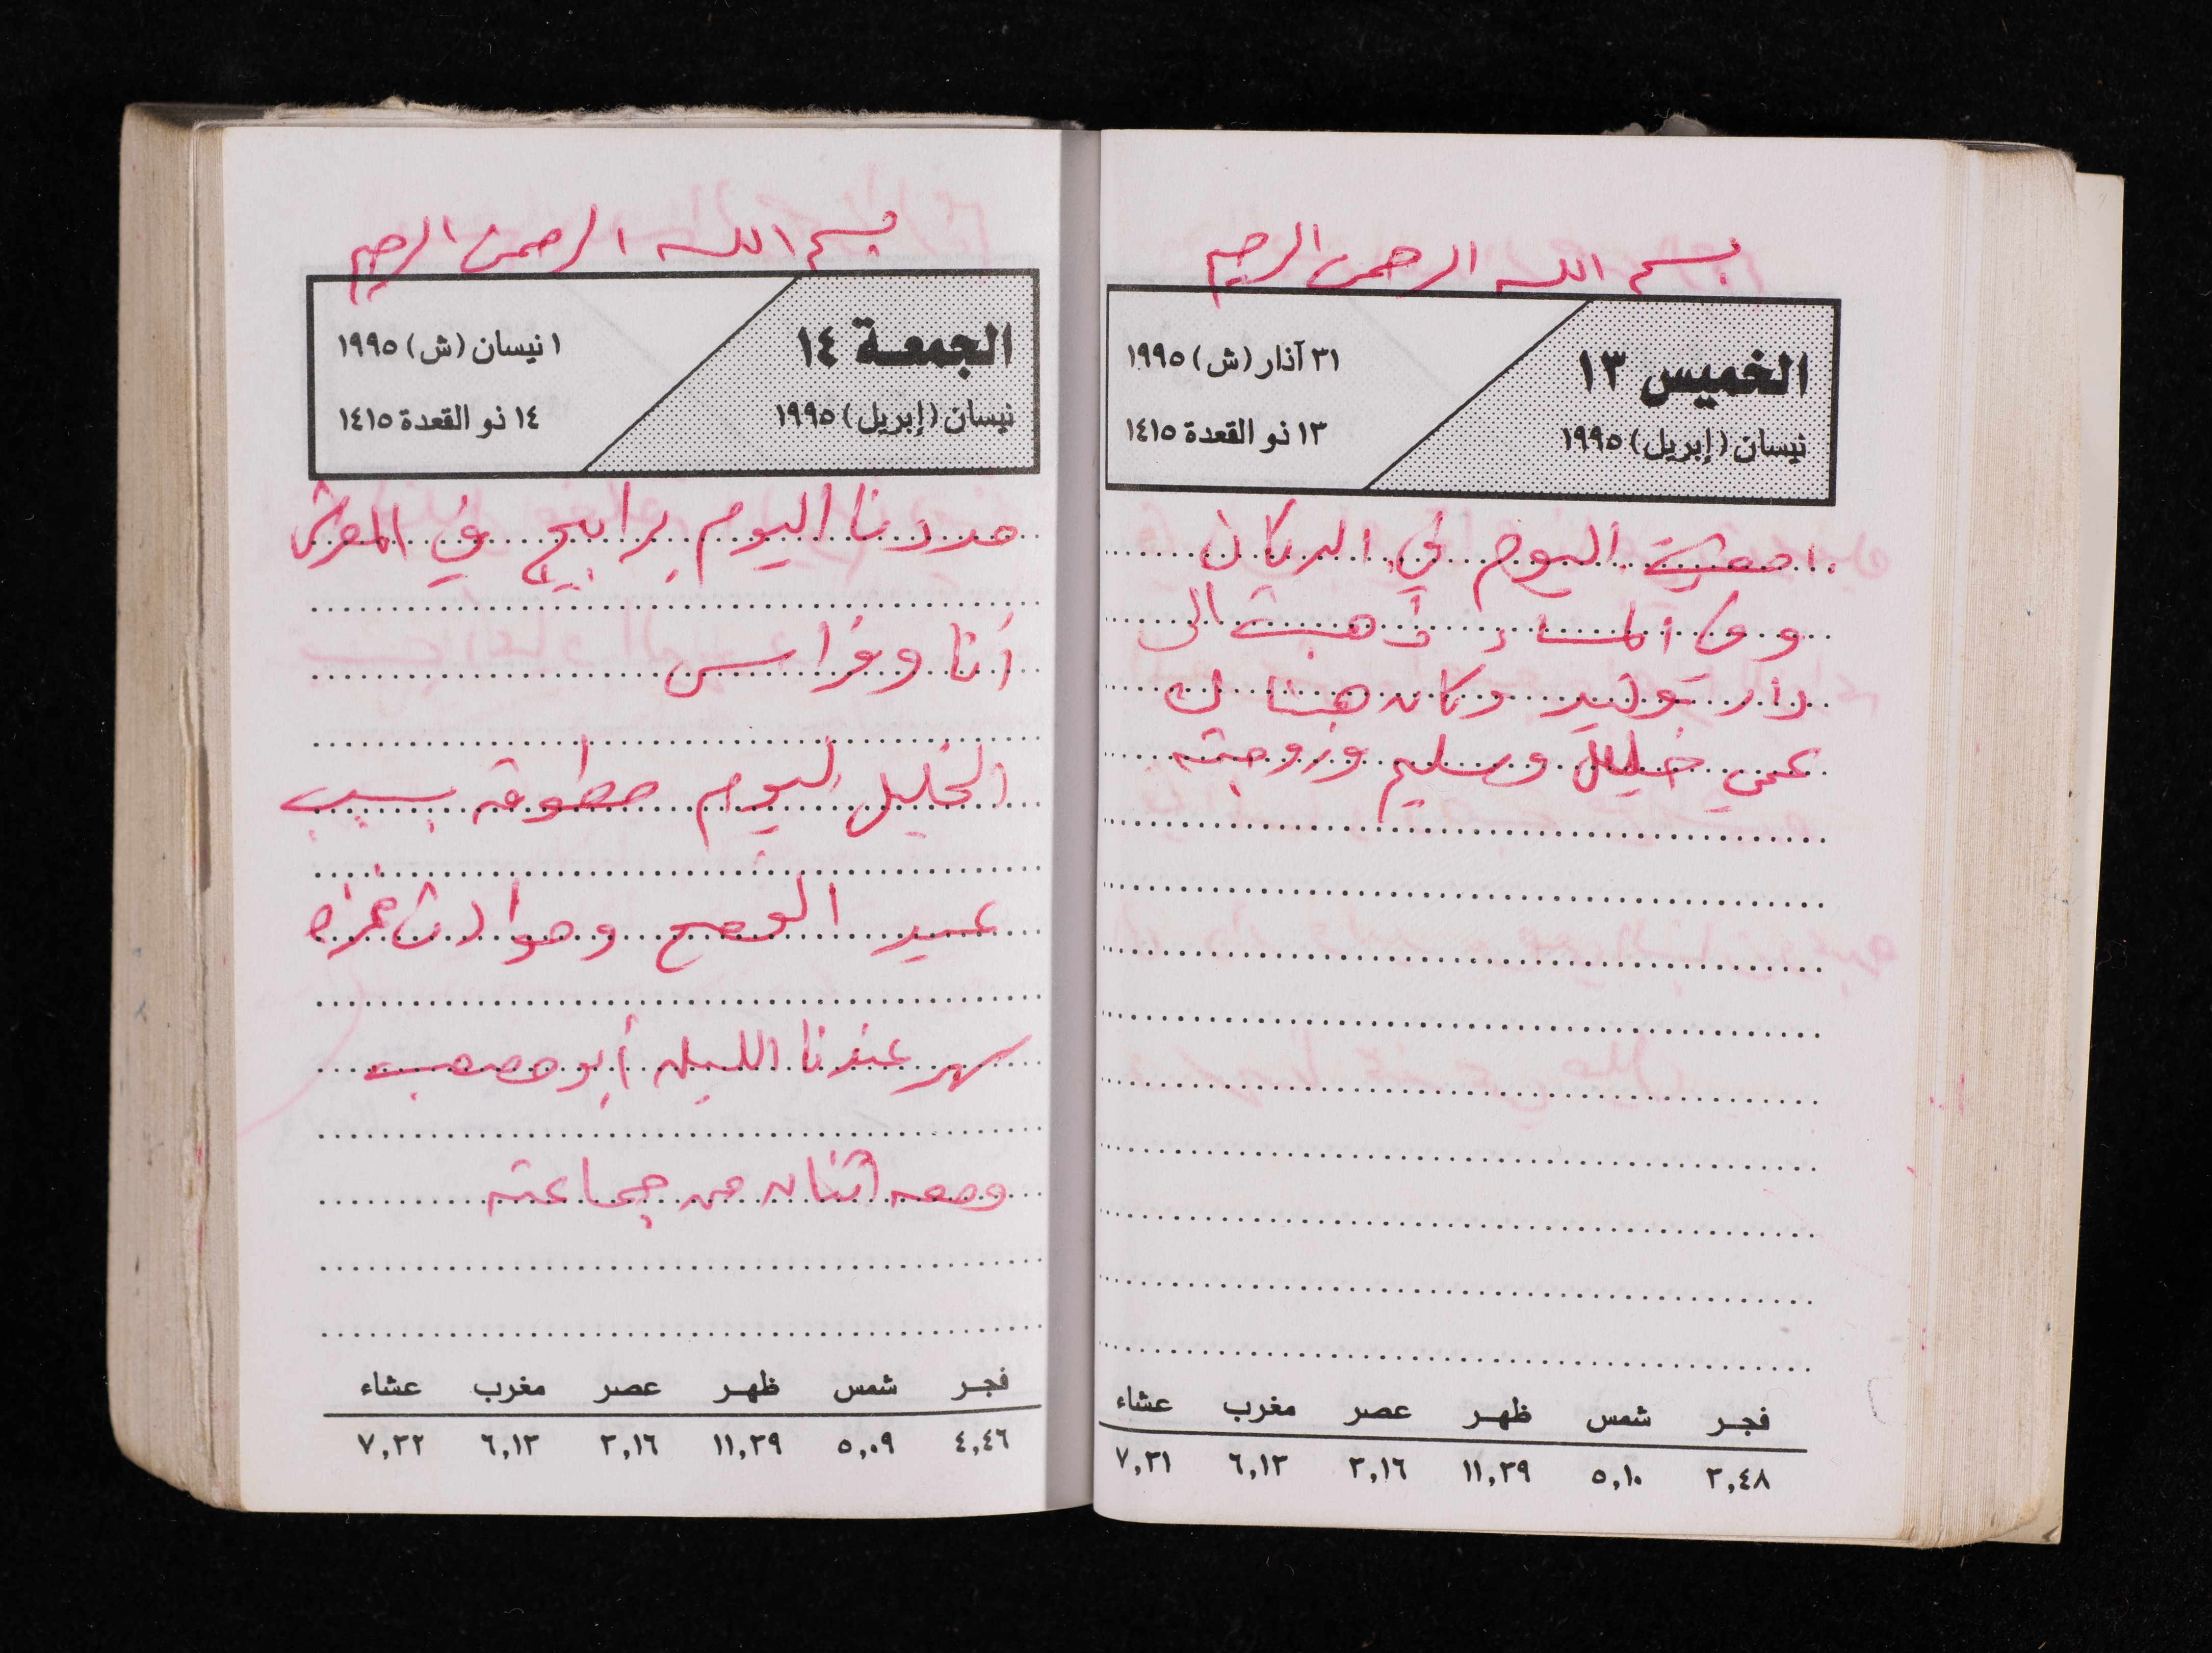 بسم الله الرحمن الرحيم
الخميس ١٣
نيسان (إبريل) ١٩٩٥
٣١ آذار (ش) ١٩٩٥
١٣ ذو القعدة ١٤١٥
امضيت اليوم في الدكان
وفي المساء ذهبت الى
دار توفيق وكان هناك
عمي خليل وسليم وزوجته
فجر شمس ظهر عصر مغرب عشاء
٣,٤٨ ٥,١٠ ١١,٣٩ ٣,١٦ ٦,١٣ ٧,٣١
بسم الله الرحمن الرحيم
الجمعة ١٤
نيسان (إبريل) ١٩٩٥
١ نيسان (ش) ١٩٩٥
١٤ ذو القعدة ١٤١٥
مددنا اليوم برابيج في المعرش
أنا وفراس
الخليل اليوم مطوقة بسبب
عيد الفصح وحوادث غزة
سهر عندنا الليلة أبو مصعب
ومعه اثنان من جماعته
فجر شمس ظهر عصر مغرب عشاء
٤,٤٦ ٥,٠٩ ١١,٣٩ ٣,١٦ ٦,١٣ ٧,٣٢